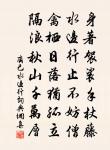 身著袈裟手杖藤
水邊行止不妨僧
禽棲日落猶孤立
隔浪秋山千萬層
齊己水邊行